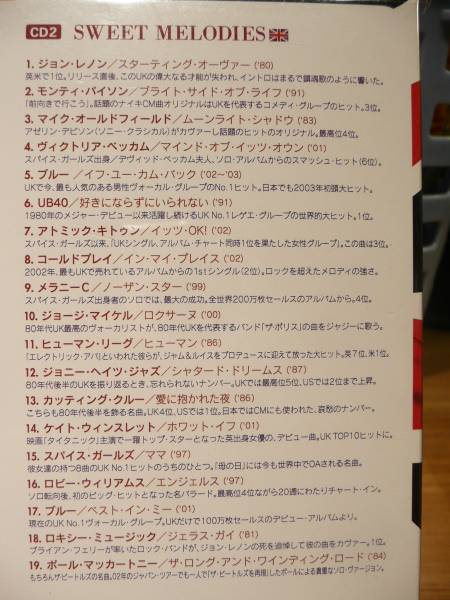 CD2 SWEET MELODIES
1. ジョン・レノン／スターティング・オーヴァー ('80)
英米で1位。リリース直後、このUKの偉大なる才能が失われ、イントロはまるで鎮魂歌のように響いた。
2. モンティ・パイソン／ブライト・サイド・オブ・ライフ ('91)
「前向きで行こう」。話題のナイキCM曲オリジナルはUKを代表するコメディ・グループのヒット。3位。
3. マイク・オールドフィールド／ムーンライト・シャドウ ('83)
アゼリン・デビソン(ソニー・クラシカル)がカヴァーし話題のヒットのオリジナル。最高位4位。
4. ヴィクトリア・ベッカム／マインド・オブ・イッツ・オウン ('01)
スパイス・ガールズ出身／デヴィッド・ベッカム夫人、ソロ・アルバムからのスマッシュ・ヒット(6位)。
5. ブルー／イフ・ユー・カム・バック ('02〜'03)
UKで今、最も人気のある男性ヴォーカル・グループのNo.1ヒット。日本でも2003年初頭大ヒット。
6. UB40／好きにならずにいられない ('91)
1980年のメジャー・デビュー以来活躍し続けるUK No.1レゲエ・グループの世界的大ヒット。1位。
7. アトミック・キトゥン／イッツ・OK! ('02)
スパイス・ガールズ以来、「UKシングル、アルバム・チャート同時1位を果たした女性グループ」。この曲は3位。
8. コールドプレイ／イン・マイ・プレイス ('02)
2002年、最もUKで売れているアルバムからの1stシングル(2位)。ロックを超えたメロディの強さ。
9. メラニーC／ノーザン・スター ('99)
スパイス・ガールズ出身者のソロでは、最大の成功。全世界200万枚セールスのアルバムから。4位。
10. ジョージ・マイケル／ロクサーヌ ('00)
80年代UK最高のヴォーカリストが、80年代UKを代表するバンド「ザ・ポリス」の曲をジャジーに歌う。
11. ヒューマン・リーグ／ヒューマン ('86)
「エレクトリック・アバ」といわれた彼らが、ジャム&ルイスをプロデュースに迎えて放った大ヒット。英7位、米1位。
12. ジョニー・ヘイツ・ジャズ／シャタード・ドリームス ('87)
80年代後半のUKを振り返るとき、忘れられないナンバー。UKでは最高位5位、USでは2位まで上昇。
13. カッティング・クルー／愛に抱かれた夜 ('86)
こちらも80年代後半を飾る名曲。UK4位、USでは1位。日本ではCMにも使われた、哀愁のナンバー。
14. ケイト・ウィンスレット／ホワット・イフ ('01)
映画「タイタニック」主演で一躍トップ・スターとなった英出身女優の、デビュー曲。UK TOP10ヒットに。
15. スパイス・ガールズ／ママ ('97)
彼女達の持つ8曲のUK No.1ヒットのうちのひとつ。「母の日」には今も世界中でOAされる名曲。
16. ロビー・ウィリアムス／エンジェルス ('97)
ソロ転向後、初のビッグ・ヒットとなった名バラード。最高位4位ながら20週にわたりチャート・イン。
17. ブルー／ベスト・イン・ミー ('01)
現在のUK No.1ヴォーカル・グループ。UKだけで100万枚セールスのデビュー・アルバムより。
18. ロキシー・ミュージック／ジェラス・ガイ ('81)
ブライアン・フェリーが率いたロック・バンドが、ジョン・レノンの死を追悼して彼の曲をカヴァー。1位。
19. ポール・マッカートニー／ザ・ロング・アンド・ワインディング・ロード ('84)
もちろんザ・ビートルズの名曲。02年のジャパン・ツアーでも一人で「ザ・ビートルズを再現」したポールによる貴重なソロ・ヴァージョン。